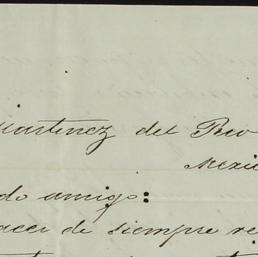 Martinez del Rio
Mexi
do amigo:
acer de siempre re